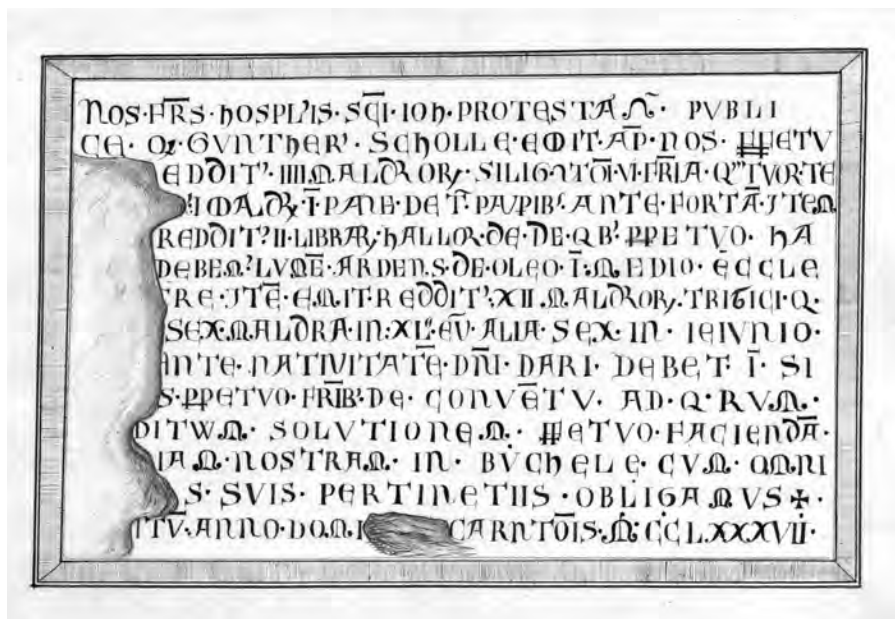 NOS·FR̅S·HOSPL'IS·SC̅I·IOH·PROTESTAM̅·PVBLI
CE·Q2·GVNTHER'·SCHOLLE·EMIT·AP̅·NOS·PPETV
EDDIT'·IIII·MALDROR·SILIGIS·VI·FR̅IA·
I·MALDR·I̅·PANE·DET̅·PAVPIB'·ANTE·PORTA̅·ITEM
REDDIT'·II·LIBRAR·HALLOR·DE·DE·QB'·PPETVO·HA
DEBEM'·LVME̅·ARDENS·DE·OLEO·I̅·MEDIO·ECCLE
RE·ITE̅·EMIT·REDDIT'·XII·MALDROR·TRIGICI·Q·
SEX·MALDRA·IN·XL·EV̅·ALIA·SEX·IN·IEIVNIO·
ANTE·NATIVITATE̅·DN̅I·DARI·DEBET·I̅·SI
S·PPETVO·FR̅IB'·DE·CONVE̅TV·AD·Q·RVM·
DITVVM·SOLVTIONEM·PPETVO·FACIENDA̅·
IAM·NOSTRAM·IN·BVCHELE·CVM·OMNI
S·SVIS·PERTINETIIS·OBLIGAMVS✠·
TV̅·ANNO·DOMI CARNTO̅IS·M·CCLXXXVII·